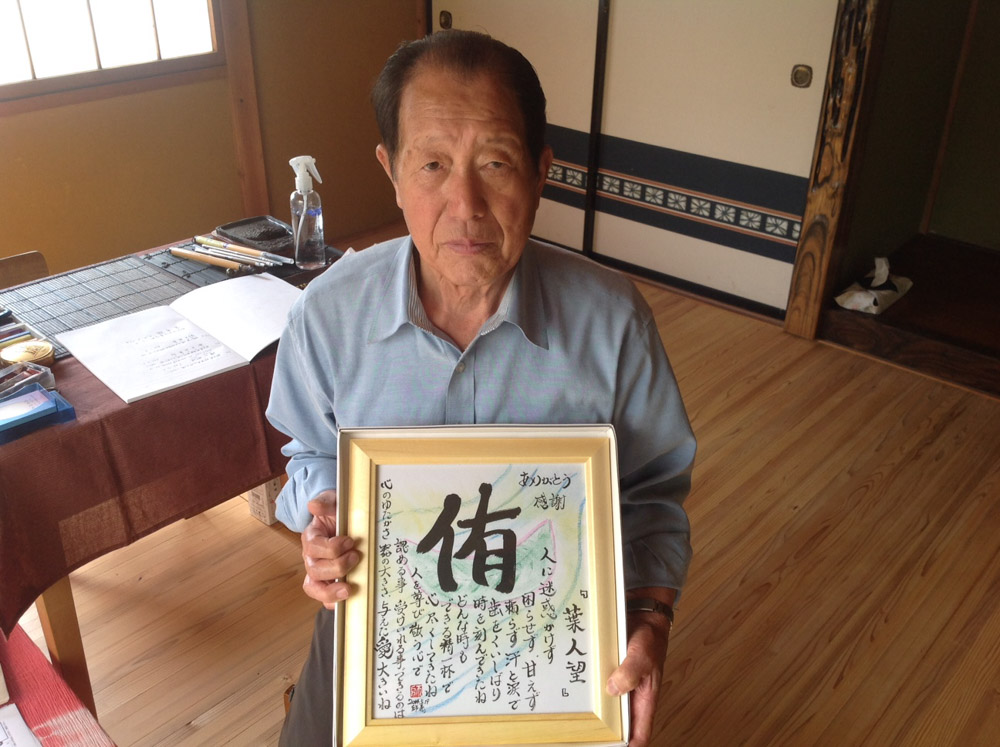 ありがとう
感謝
侑
『葉人望』
人に迷惑かけず
困らせず 甘えず
頼らず 汗と涙で
歯をくいしばり
時を刻んできたね
どんな時も
できる精一杯で
心尽くしてきたね
人を尊び 敬う心で
認める事 受けいれる事できるのは
心のゆたかさ 器の大きさ 与えた愛 大きいね